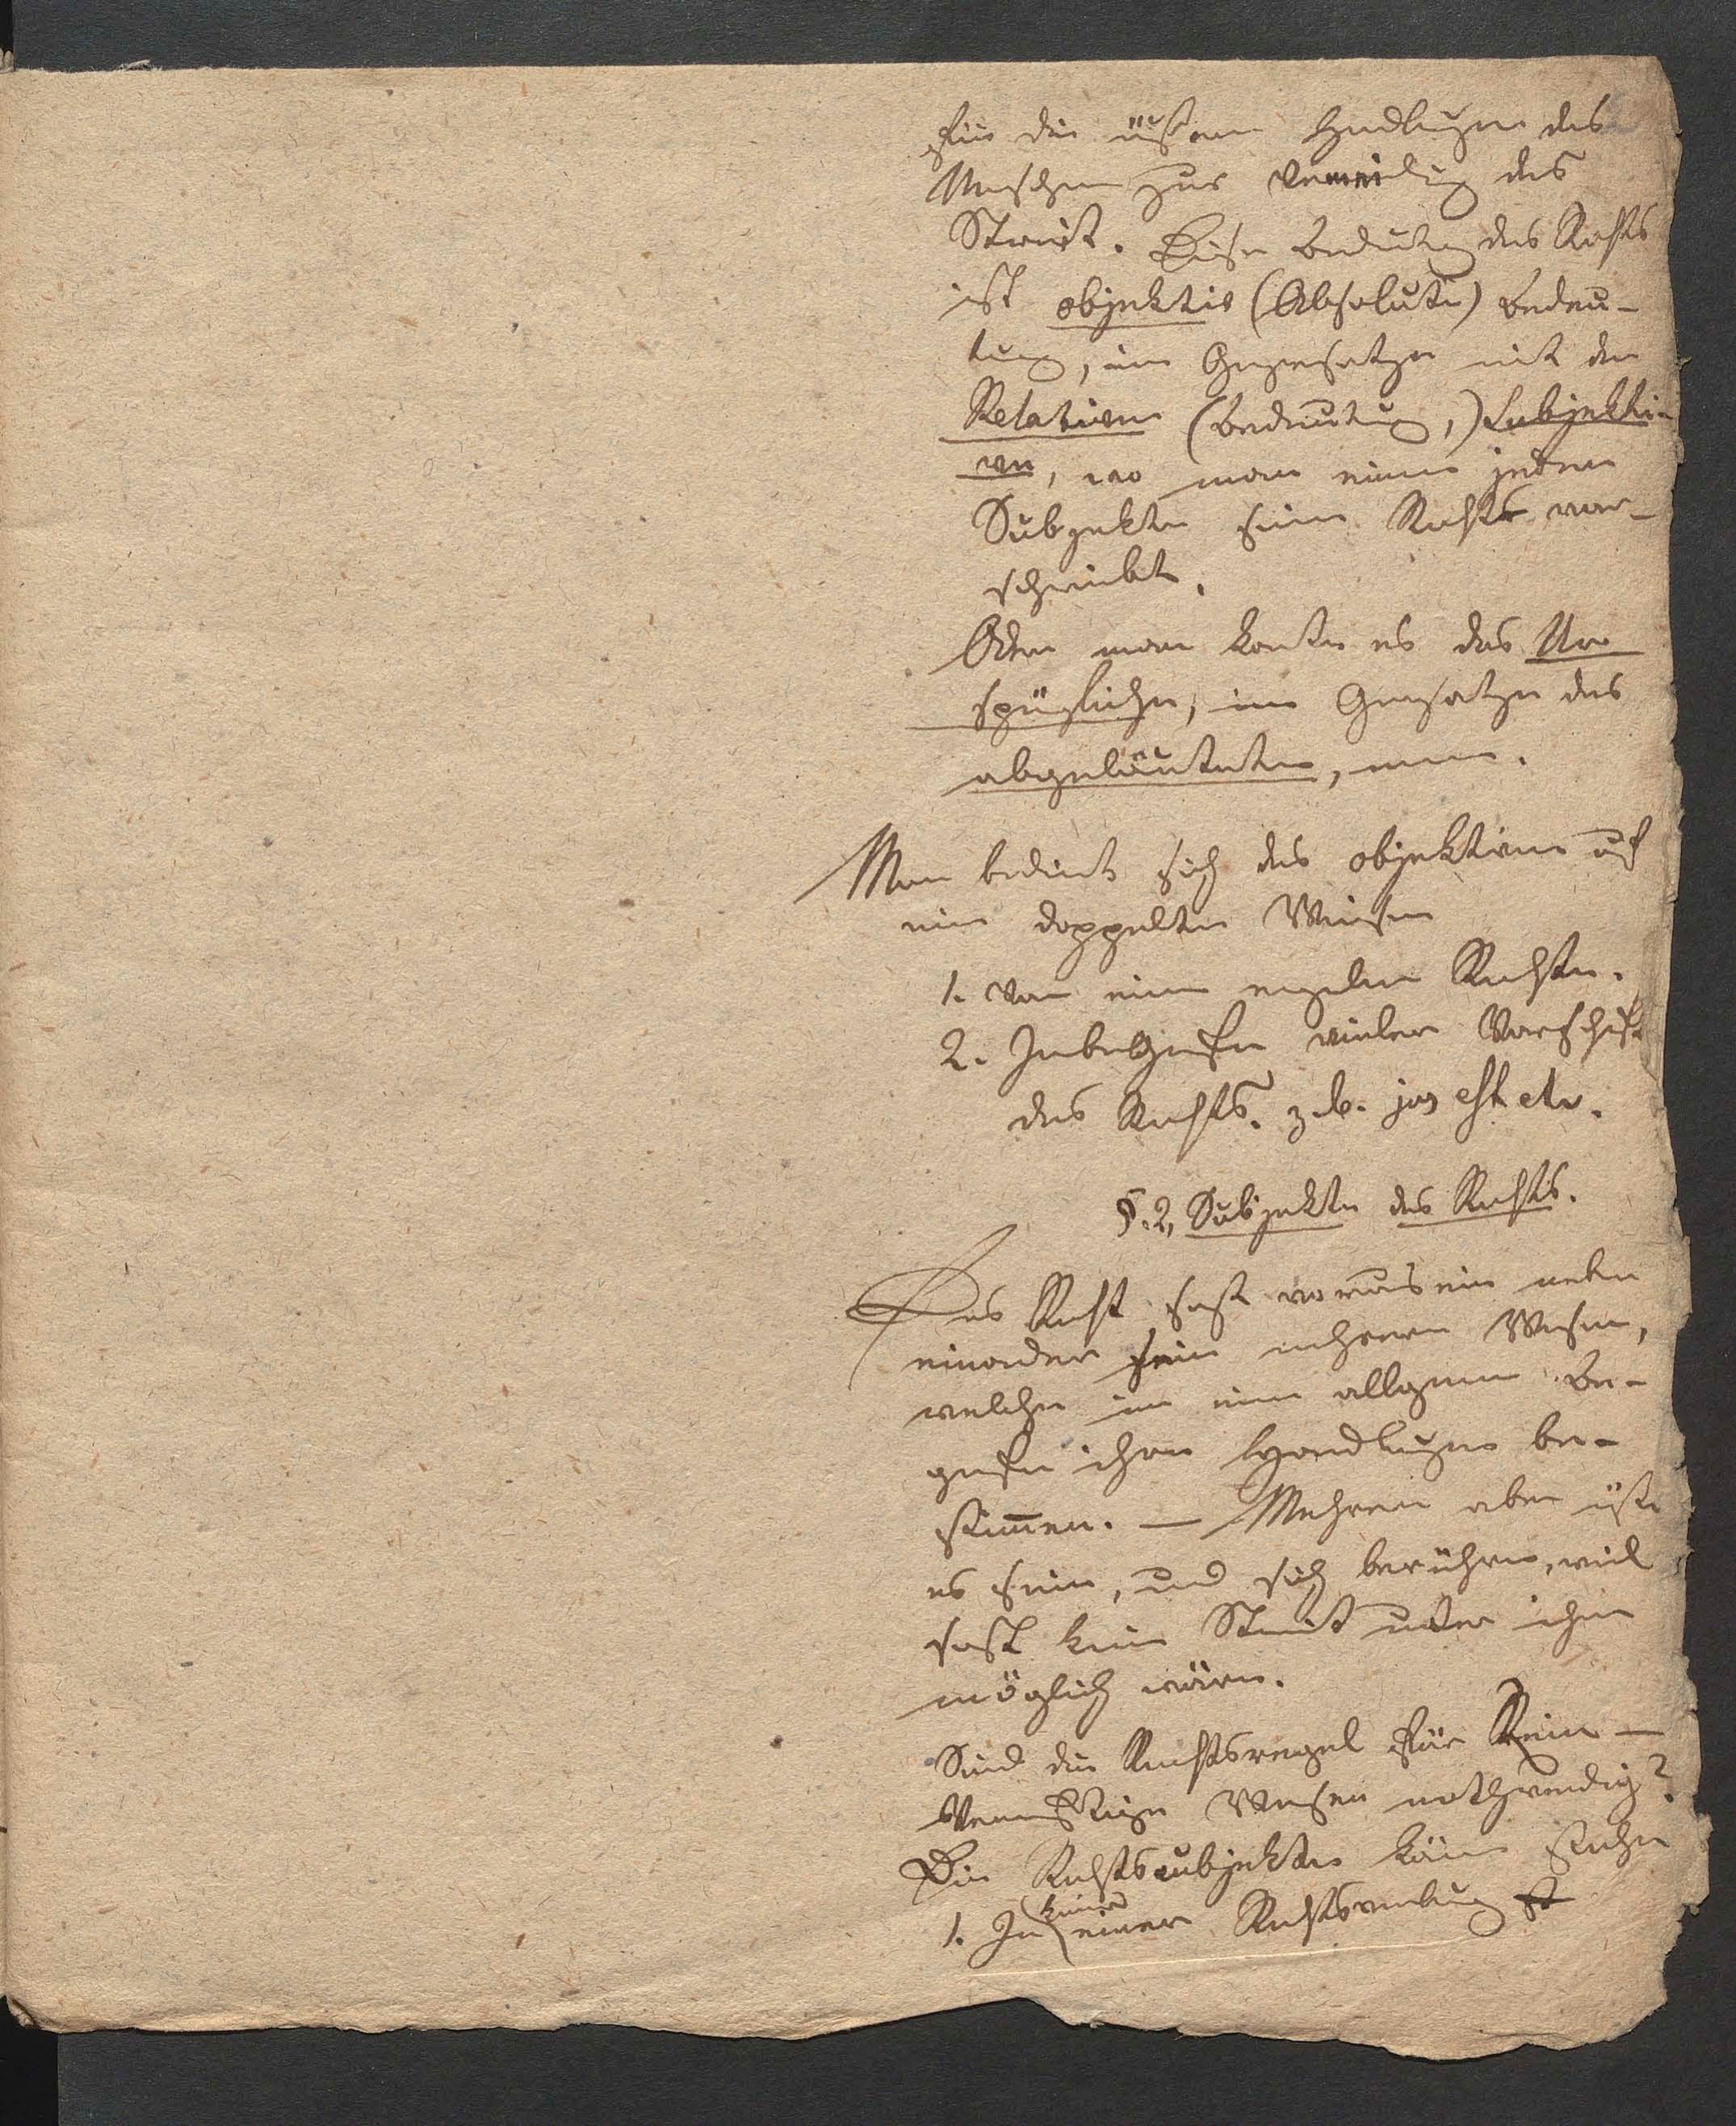 für die äußern Handlungen des
Menschen zur Vermeidung des
Streit. Diese Bedeutung des Rechts
ist objektiv (Absolute) Bedeu-
tung, im Gegensatze mit der
Relativen (Bedeutung,) Subjekti-
ven, wo man einem jeden
Subjekte seine Rechte vor-
schreibt.
Oder man konte es das Ur
sprüngliche, im Gegensatze des
abgeläuteten, nenen.
Man bedient sich des objektiven auf
eine doppelten Weisen
1. Von einem Rechte.
2. Inbegriffe vieler Vorschrift
des Rechts. z. b. jus est etc.
§. 2, Subjekte des Rechts.
Das Recht sezt voraus ein neben
einander sein mehrern Wesen,
welche im einen allgemeinen Be-
griffe ihre Handlungen be-
stim̅en. — Mehrere aber
es sein, und sich berühren, weil
sonst kein Streit unter ihnen
möglich wären.
Sind die Rechtsregel für Rein-
Vernünftige Wesen nothwendig?
Die Rechtssubjekte könen stehen
1. In keiner einer Rechtsverbindung